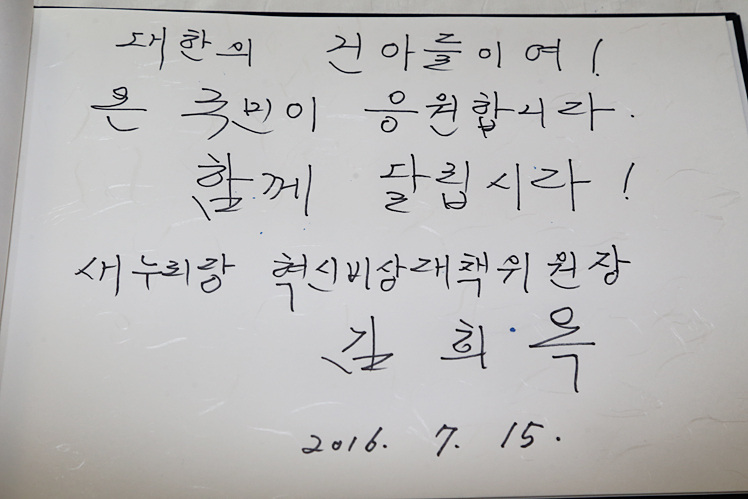 대한의 건아들이여!
온 국민이 응원합니다.
함께 달립시다!
새누리당 혁신비상대책위원장
김희옥
2016. 7. 15.